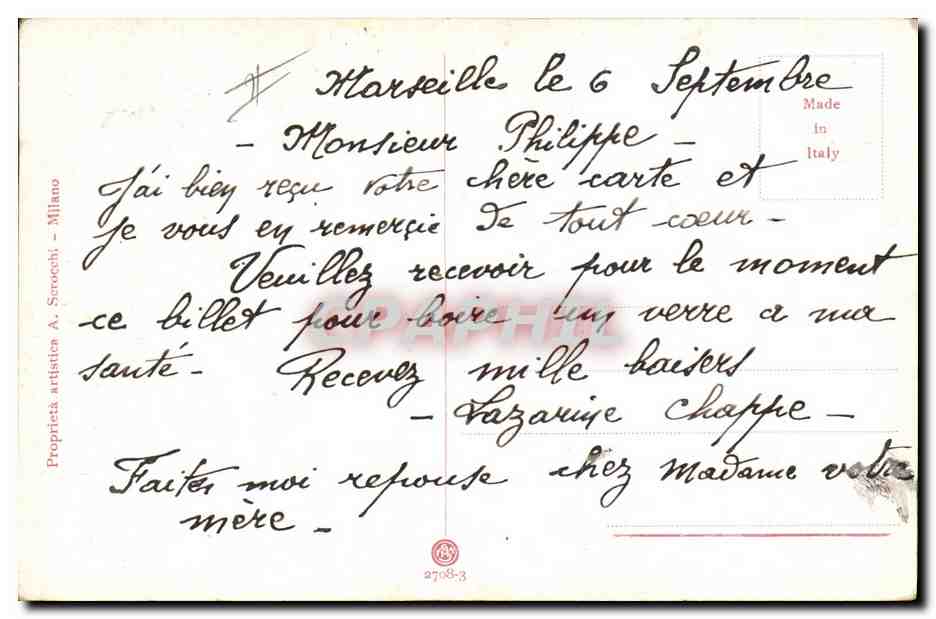 Marseille le 6 Septembre
- Monsieur Philippe -
J'ai bien reçu votre chère carte et
je vous en remerçie de tout cœur -
Veuillez recevoir pour le moment
ce billet pour boire un verre a ma
santé - Recevez mille baisers
- Lazarine Chappe -
Faites moi reponse chez Madame votre
mère -
Made
in
Italy
Proprietà artistica A. Scrocchi - Milano
2708-3
CPAPHIL